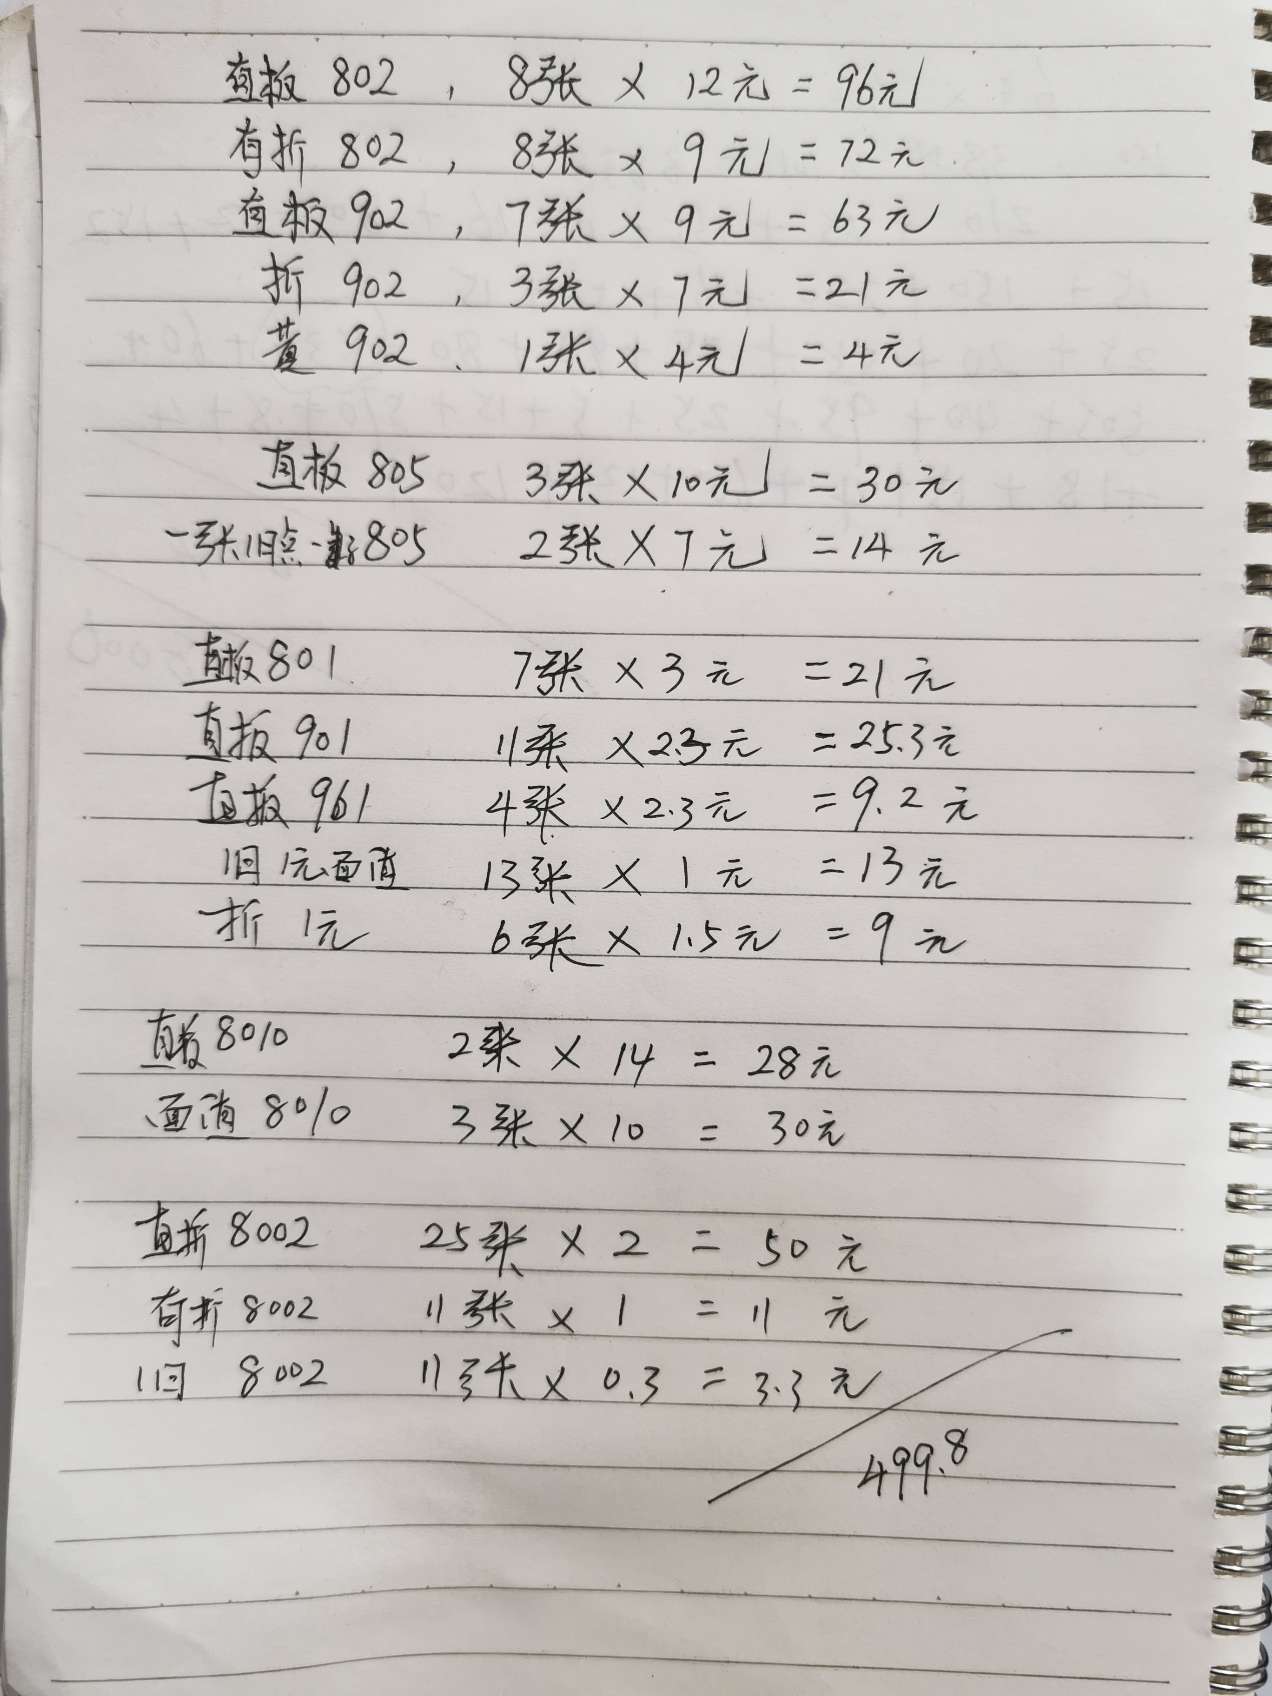 直板 802 , 8张 × 12元 = 96元
有折 802 , 8张 × 9元 = 72元
直板 902 , 7张 × 9元 = 63元
折 902 , 3张 × 7元 = 21元
黄 902 . 1张 × 4元 = 4元
直板 805 3张 × 10元 = 30元
一张旧点一 805 2张 × 7元 = 14元
直板801 7张 × 3元 = 21元
直板 901 11张 × 2.3元 = 25.3元
直板 961 4张 × 2.3元 = 9.2元
旧 1元面值 13张 × 1元 = 13元
折 1元 6张 × 1.5元 = 9元
直板 8010 2张 × 14 = 28元
面值 8010 3张 × 10 = 30元
直折 8002 25张 × 2 = 50元
有折 8002 11张 × 1 = 11元
旧 8002 11张 × 0.3 = 3.3元
499.8